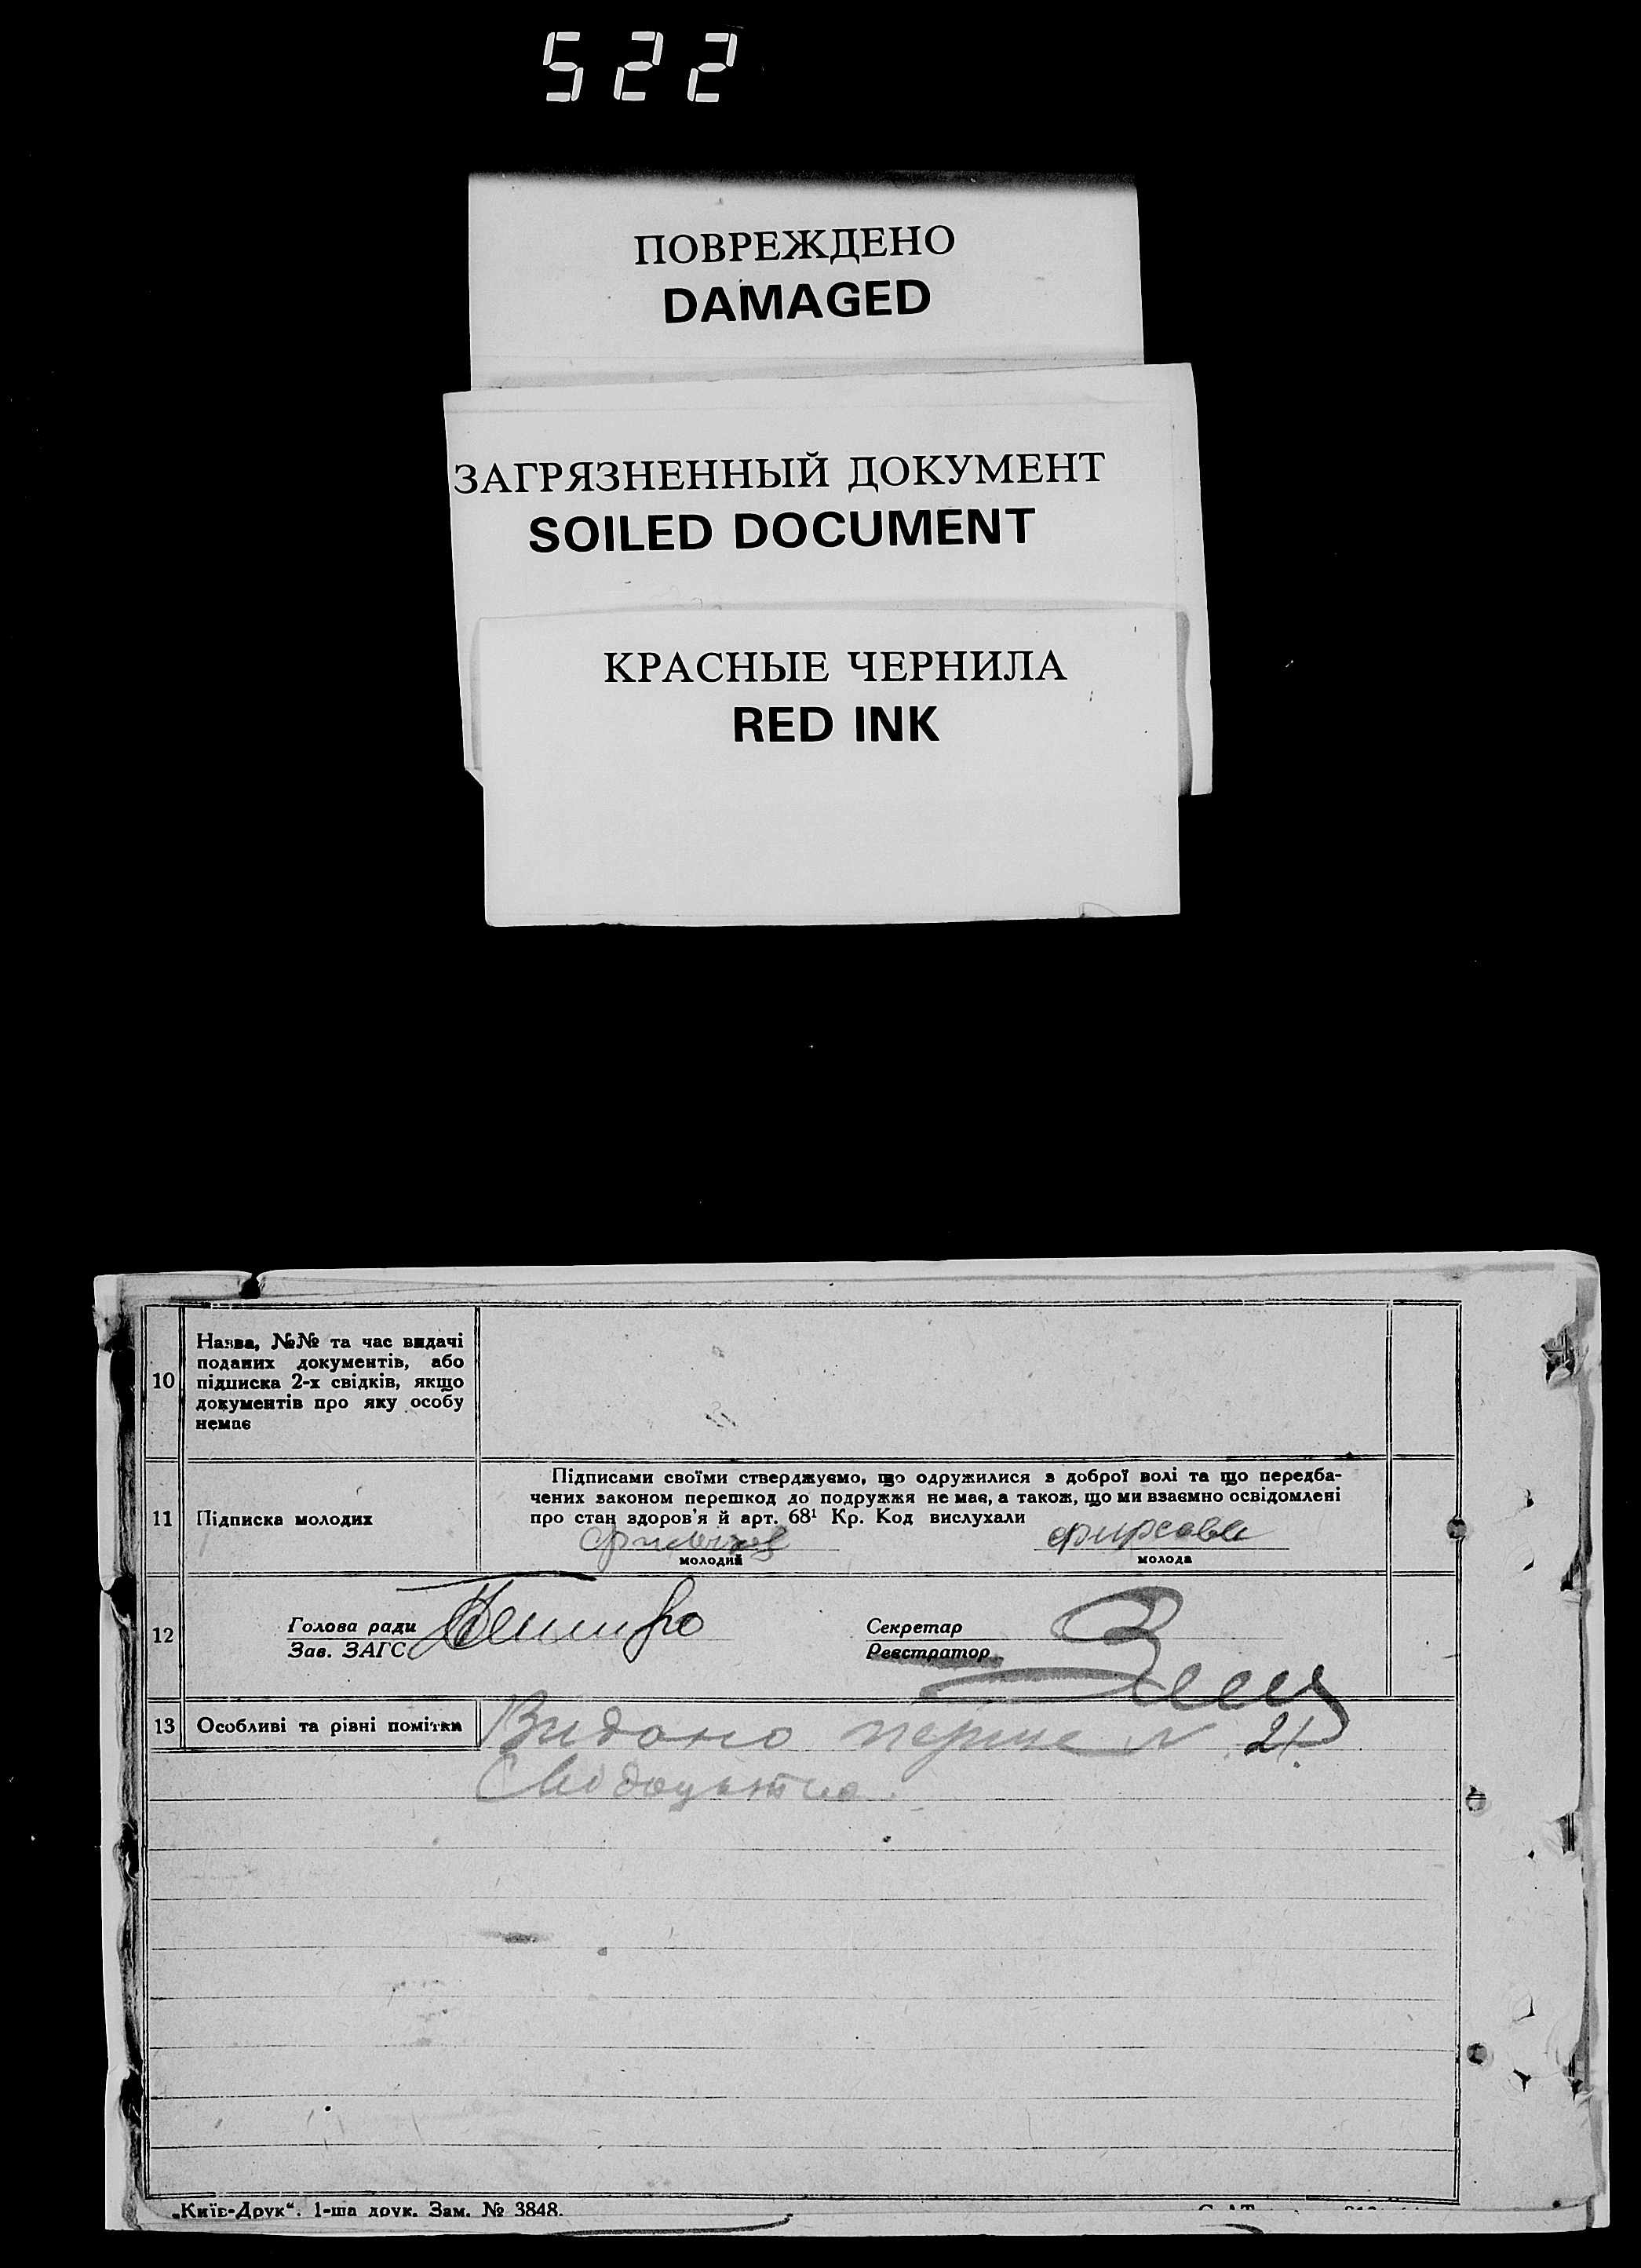 522
ПОВРЕЖДЕНО
DAMAGED
ЗАГРЯЗНЕННЫЙ ДОКУМЕНТ
SOILED DOCUMENT
КРАСНЫЕ ЧЕРНИЛА
RED INK
10
Назва, №№ та час видачі
поданих документів, або
підписка 2-х свідків, якщо
документів про яку особу
немає
Підписами своїми стверджуємо, що одружилися з доброї волі та що передба-
чених законом перешкод до подружжя не має, а також, що ми взаємно освідомлені
11 Підписка молодих
про стан здоров'я й арт. 68¹ Кр. Код вислухали
Фирсова
молодий молода
12
Голова ради
Зав. ЗАГС
Секретар
Реєстратор
13 Особливі та рівні помітки
Видано перше N 21
Свідоцтво.
„Київ-Друк“. 1-ша друк. Зам. № 3848.